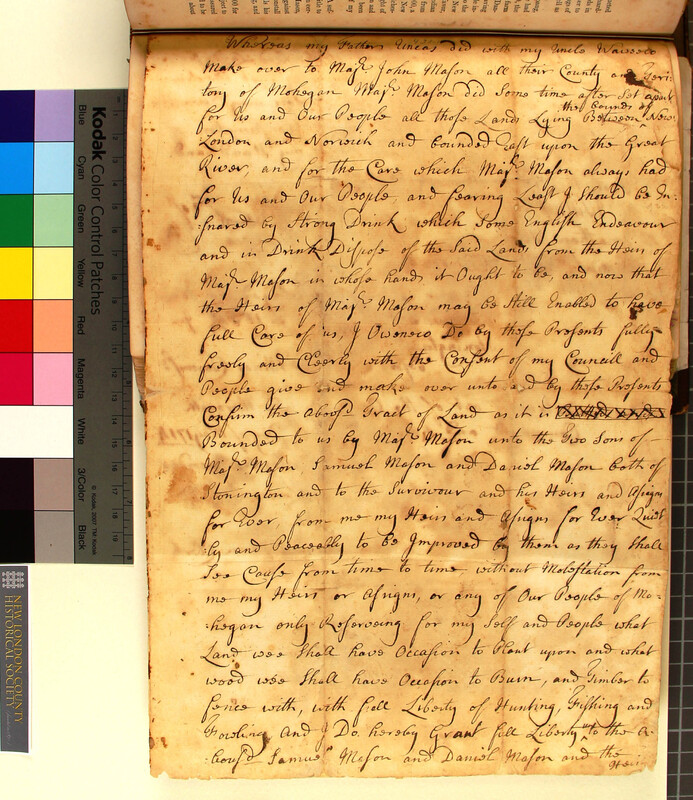 Whereas my Father Uncas did with my Uncle Waweeco
Make over to Majr. John Mason all their County and Terri
tory of Mohegan Majr. Mason did Some time after Set apart
for Us and Our People all those Lands Lying Between the bounds of New
London and Norwich and bounded East upon the Great
River, and for the Care which Majr. Mason always had
for Us and Our People and fearing Least I Should be In-
-snared by Strong Drink which Some English Endeavour
and in Drink Dispose of the Said Lands from the Heirs of
Majr. Mason in whose hands it Ought to be, and now that
the Heirs of Majr. Mason may be Still Enabled to have
full Care of us, I Oweneco Do by these Presents fully
freely and Cleerly with the Consent of my Councill and
People give and make over unto and by these Presents
Confirm the abovesd. Tract of Land as it is
Bounded to us by Majr. Mason unto the Two Sons of
Majr. Mason, Samuel Mason and Daniel Mason both of
Stonington and to the Survivour and his Heirs and Assigns
for Ever, from me my Heirs and Assigns for Ever Quiet
-ly and Peaceably to be Improved by them as they Shall
See Cause from time to time without Molestation from
me my Heirs or Assigns, or any of Our People of Mo-
-hegan only Reserveing for my Self and People what
Land wee Shall have Occasion to Plant upon and what
wood wee Shall have Occasion to Burn, and Timber to
fence with, with full Liberty of Hunting, Fishing and
Fowling And I Do hereby Grant full Liberty to the a-
-bovesd. Samuel Mason and Daniel Mason and the
Heirs
Kodak Color Control Patches
Blue
Cyan
Green
Yellow
Red
Magenta
White
3/Color
Black
© Kodak, 2007 TM: Kodak
NEW LONDON COUNTY
HISTORICAL SOCIETY